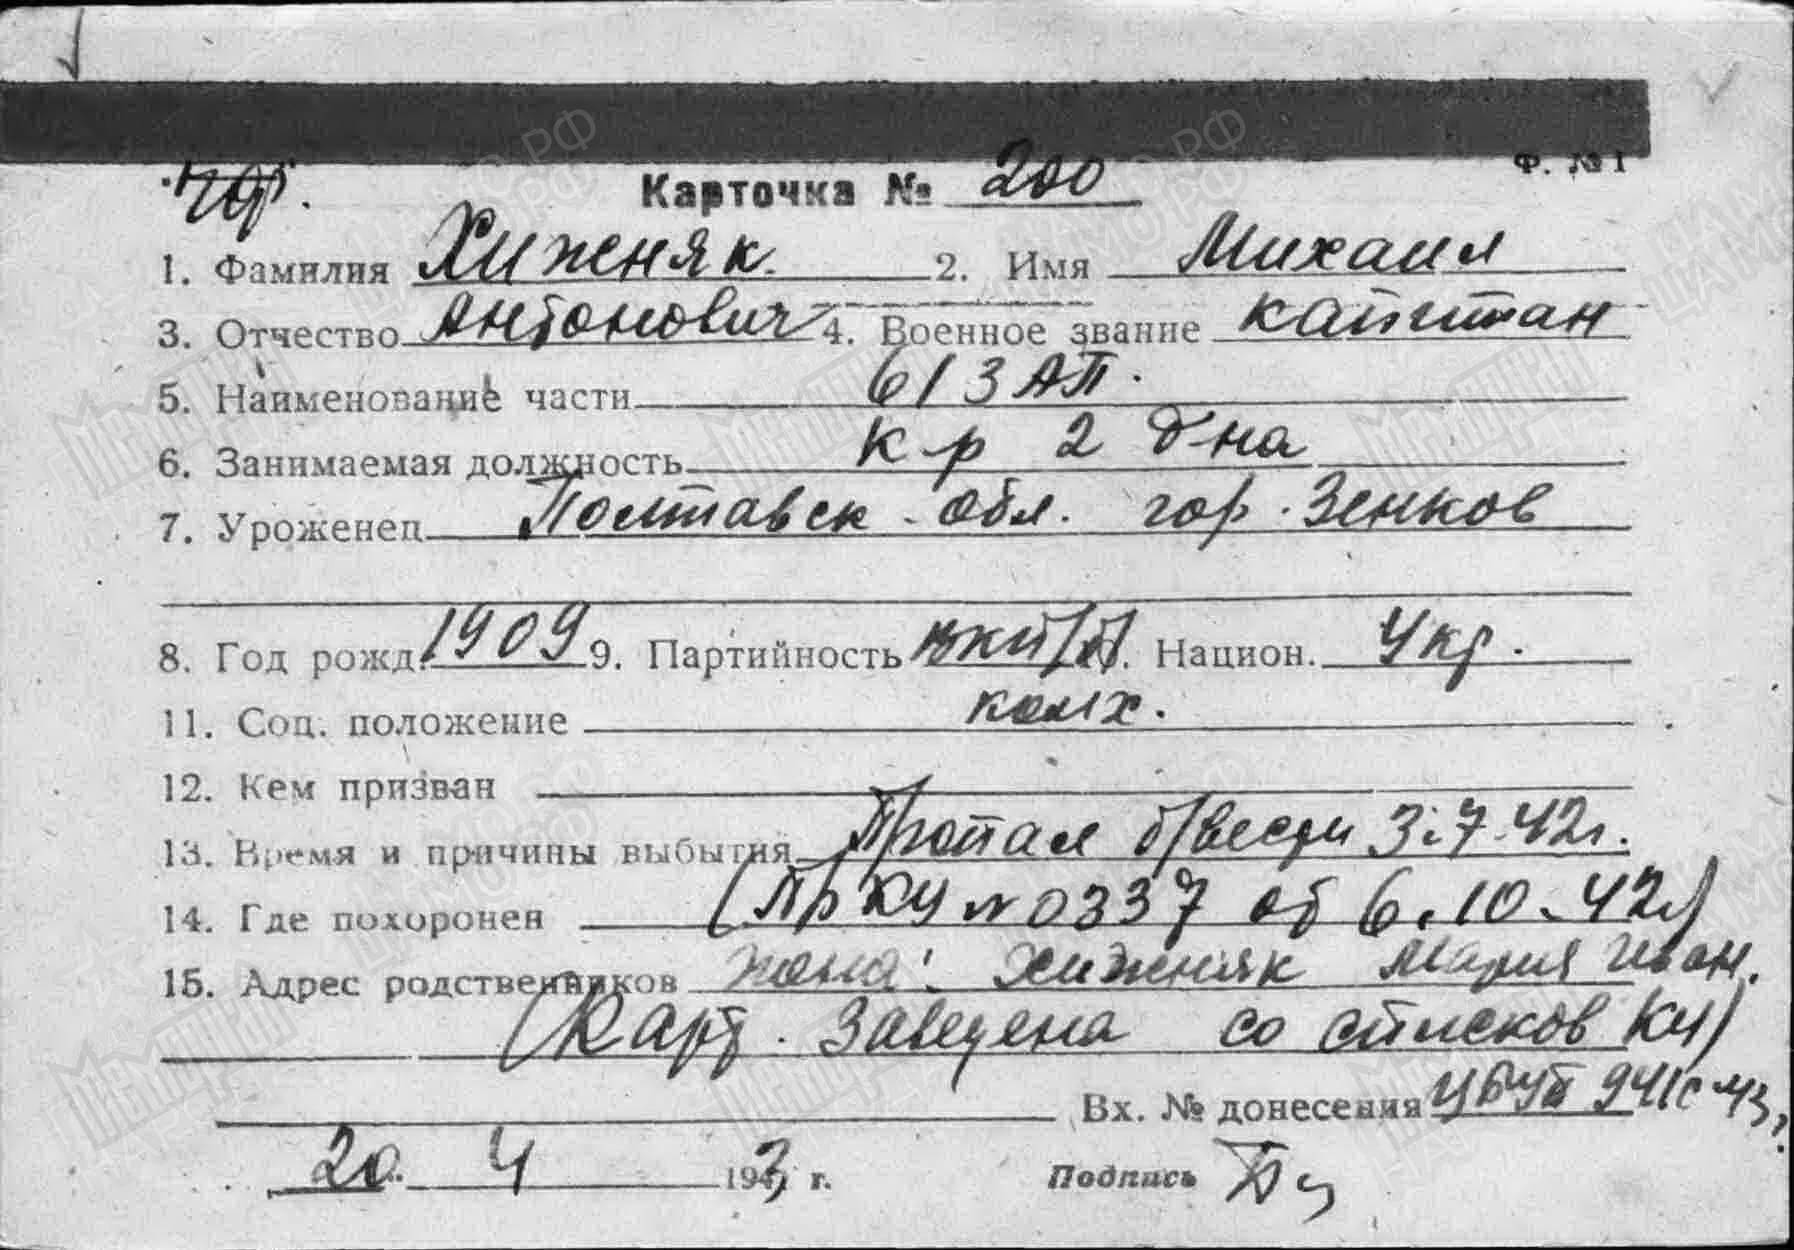 Ф. №1
Карточка № 200
1. Фамилия Хижняк. 2. Имя Михаил
3. Отчество Антонович 4. Военное звание капитан
5. Наименование части 613 АП.
6. Занимаемая должность к-р 2 д-на
7. Уроженец Полтавск. обл. гор. Зенков
8. Год рожд. 1909 9. Партийность ВКП/б/. Национ. Укр.
11. Соц. положение колх.
12. Кем призван
13. Время и причины выбытия Пропал б/вести 3.7.42г.
14. Где похоронен (Пр КУ № 0337 об 6.10.42г)
15. Адрес родственников жена: Хижняк Мария Иван.
(Карт. Заведена со списков КУ)
Вх. № донесения ЦБУП 941с 43г
20. 4 1943 г. Подпись